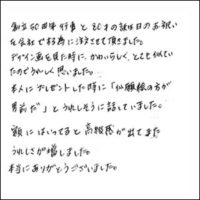 創立50周年行事と50才の誕生日のお祝い
を会社で行う為に注文させて頂きました。
デザイン画を見た時に、かわいらしく、とても似てい
たのでうれしく思いました。
本人にプレゼントした時に「似顔絵の方が
男前だ」とうれしそうに話していました。
額にはいってると高級感が出てまた
うれしさが増しました。
本当にありがとうございました。